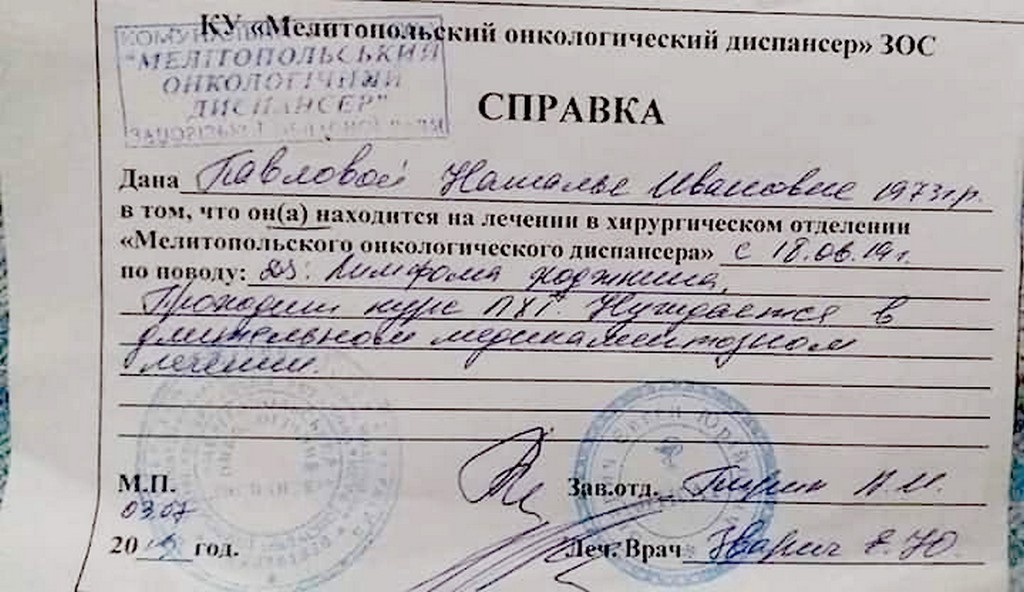 КУ «Мелитопольский онкологический диспансер» ЗОС
"МЕЛІТОПОЛЬСЬКИЙ
ОНКОЛОГІЧНИЙ
ДИСПАНСЕР"
СПРАВКА
Дана Павловой Наталье Ивановне 1973г.р.
в том, что он(а) находится на лечении в хирургическом отделении
«Мелитопольского онкологического диспансера» с 18.06.19г.
по поводу: DS: Лимфома Ходжкина,
Проходит курс ПХТ. Нуждается в
длительном медикаментозном
лечении.
М.П. Зав.отд.
03.07
2019 год. Леч. Врач Зварич Е.Ю.